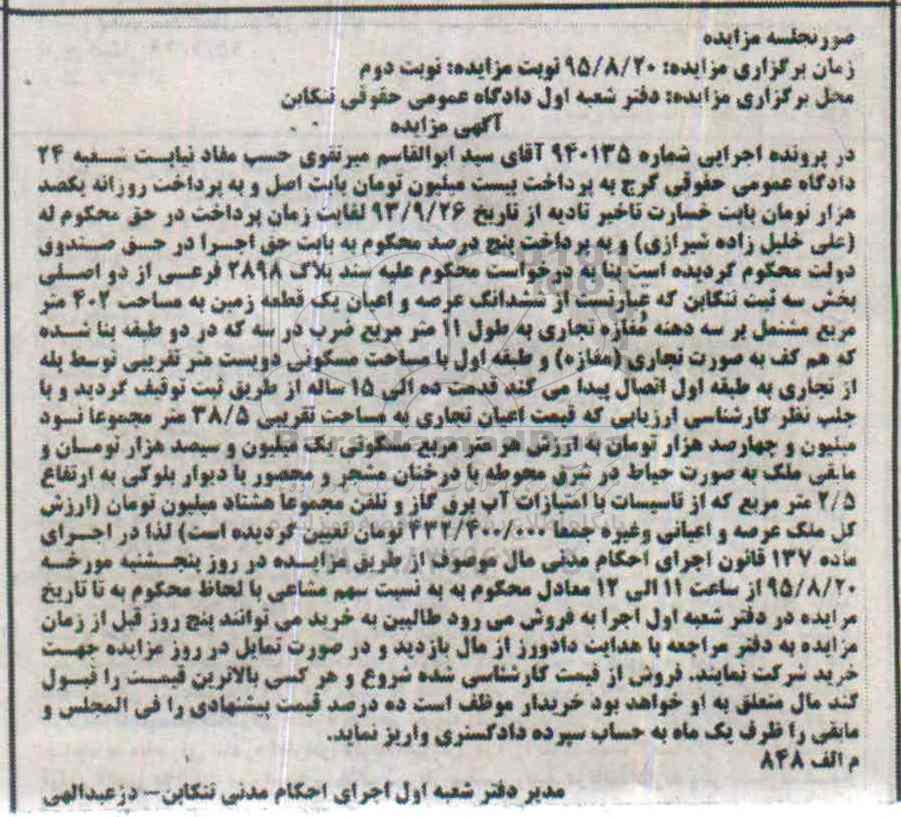 صورتجلسه مزایده
زمان برگزاری مزایده: ۹۵/۸/۲۰ نوبت مزایده: نوبت دوم
محل برگزاری مزایده: دفتر شعبه اول دادگاه عمومی حقوقی تنکابن
آگهی مزایده
در پرونده اجرایی شماره ۹۴۰۱۳۵ آقای سید ابوالقاسم میرتقوی حسب مفاد نیابت شعبه ۲۴
دادگاه عمومی حقوقی کرج به پرداخت بیست میلیون تومان بابت اصل و به پرداخت روزانه یکصد
هزار تومان بابت خسارت تاخیر تادیه از تاریخ ۹۳/۹/۲۶ لغایت زمان پرداخت در حق محکوم له
(علی خلیل زاده شیرازی) و به پرداخت پنج درصد محکوم به بابت حق اجرا در حق صندوق
دولت محکوم گردیده است بنا به درخواست محکوم علیه سند پلاک ۲۸۹۸ فرعی از دو اصلی
بخش سه ثبت تنکابن که عبارتست از ششدانگ عرصه و اعیان یک قطعه زمین به مساحت ۴۰۲ متر
مربع مشتمل بر سه دهنه مغازه تجاری به طول ۱۱ متر مربع ضرب در سه که در دو طبقه بنا شده
که هم کف به صورت تجاری (مغازه) و طبقه اول با مساحت مسکونی دویست متر تقریبی توسط پله
از تجاری به طبقه اول اتصال پیدا می کند قدمت ده الی ۱۵ ساله از طریق ثبت توقیف گردید و با
جلب نظر کارشناسی ارزیابی که قیمت اعیان تجاری به مساحت تقریبی ۳۸/۵ متر مجموعا نود
میلیون و چهارصد هزار تومان به ارزش هر متر مربع مسکونی یک میلیون و سیصد هزار تومان و
مابقی ملک به صورت حیاط در شرق محوطه با درختان مشجر و محصور با دیوار بلوکی به ارتفاع
۲/۵ متر مربع که از تاسیسات با امتیازات آب برق گاز و تلفن مجموعا هشتاد میلیون تومان (ارزش
کل ملک عرصه و اعیانی وغیره جمعا ۴۳۲/۴۰۰/۰۰۰ تومان تعیین گردیده است) لذا در اجرای
ماده ۱۳۷ قانون اجرای احکام مدنی مال موصوف از طریق مزایده در روز پنجشنبه مورخه
۹۵/۸/۲۰ از ساعت ۱۱ الی ۱۲ معادل محکوم به به نسبت سهم مشاعی با لحاظ محکوم به تا تاریخ
مزایده در دفتر شعبه اول اجرا به فروش می رود طالبین به خرید می توانند پنج روز قبل از زمان
مزایده به دفتر مراجعه با هدایت دادورز از مال بازدید و در صورت تمایل در روز مزایده جهت
خرید شرکت نمایند. فروش از قیمت کارشناسی شده شروع و هر کسی بالاترین قیمت را قبول
کند مال متعلق به او خواهد بود خریدار موظف است ده درصد قیمت پیشنهادی را فی المجلس و
مابقی را ظرف یک ماه به حساب سپرده دادگستری واریز نماید.
م الف ۸۴۸
مدیر دفتر شعبه اول اجرای احکام مدنی تنکابن- دزعبدالهی